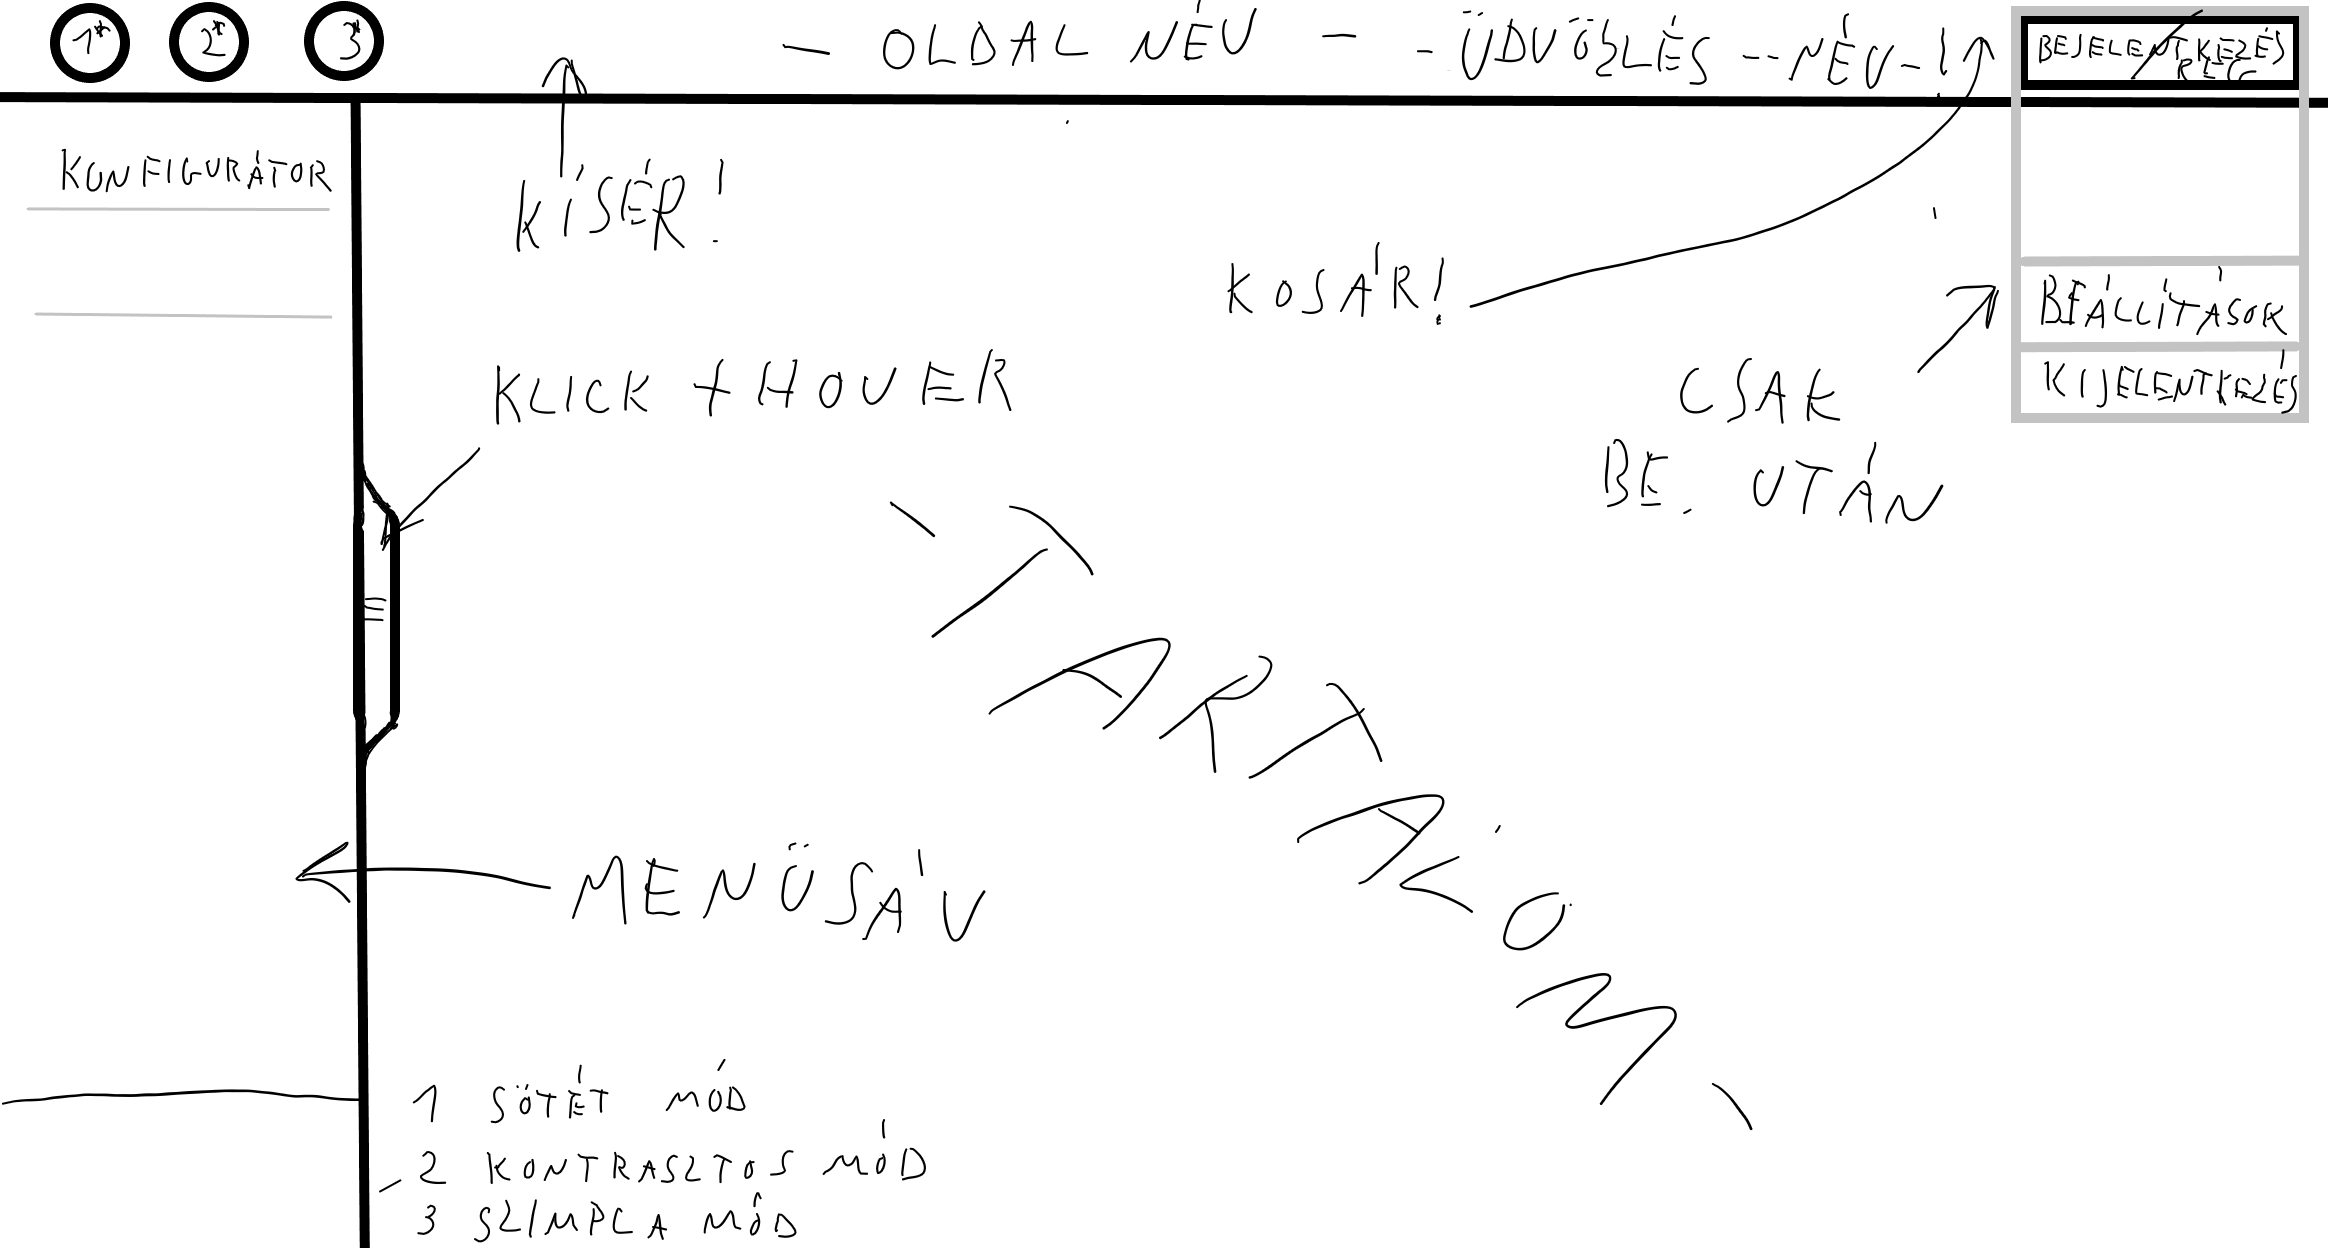 1* 2* 3* - OLDAL NÉV - - ÜDVÖZLÉS -- NÉV - ! BEJELENTKEZÉS / REG
KONFIGURÁTOR
KÍSÉR!
KOSÁR!
BEÁLLÍTÁSOK
KLICK + HOVER
CSAK
KIJELENTKEZÉS
BE. UTÁN
- TARTALOM -
MENÜSÁV
1 SÖTÉT MÓD
2 KONTRASZTOS MÓD
3 SZIMPLA MÓD